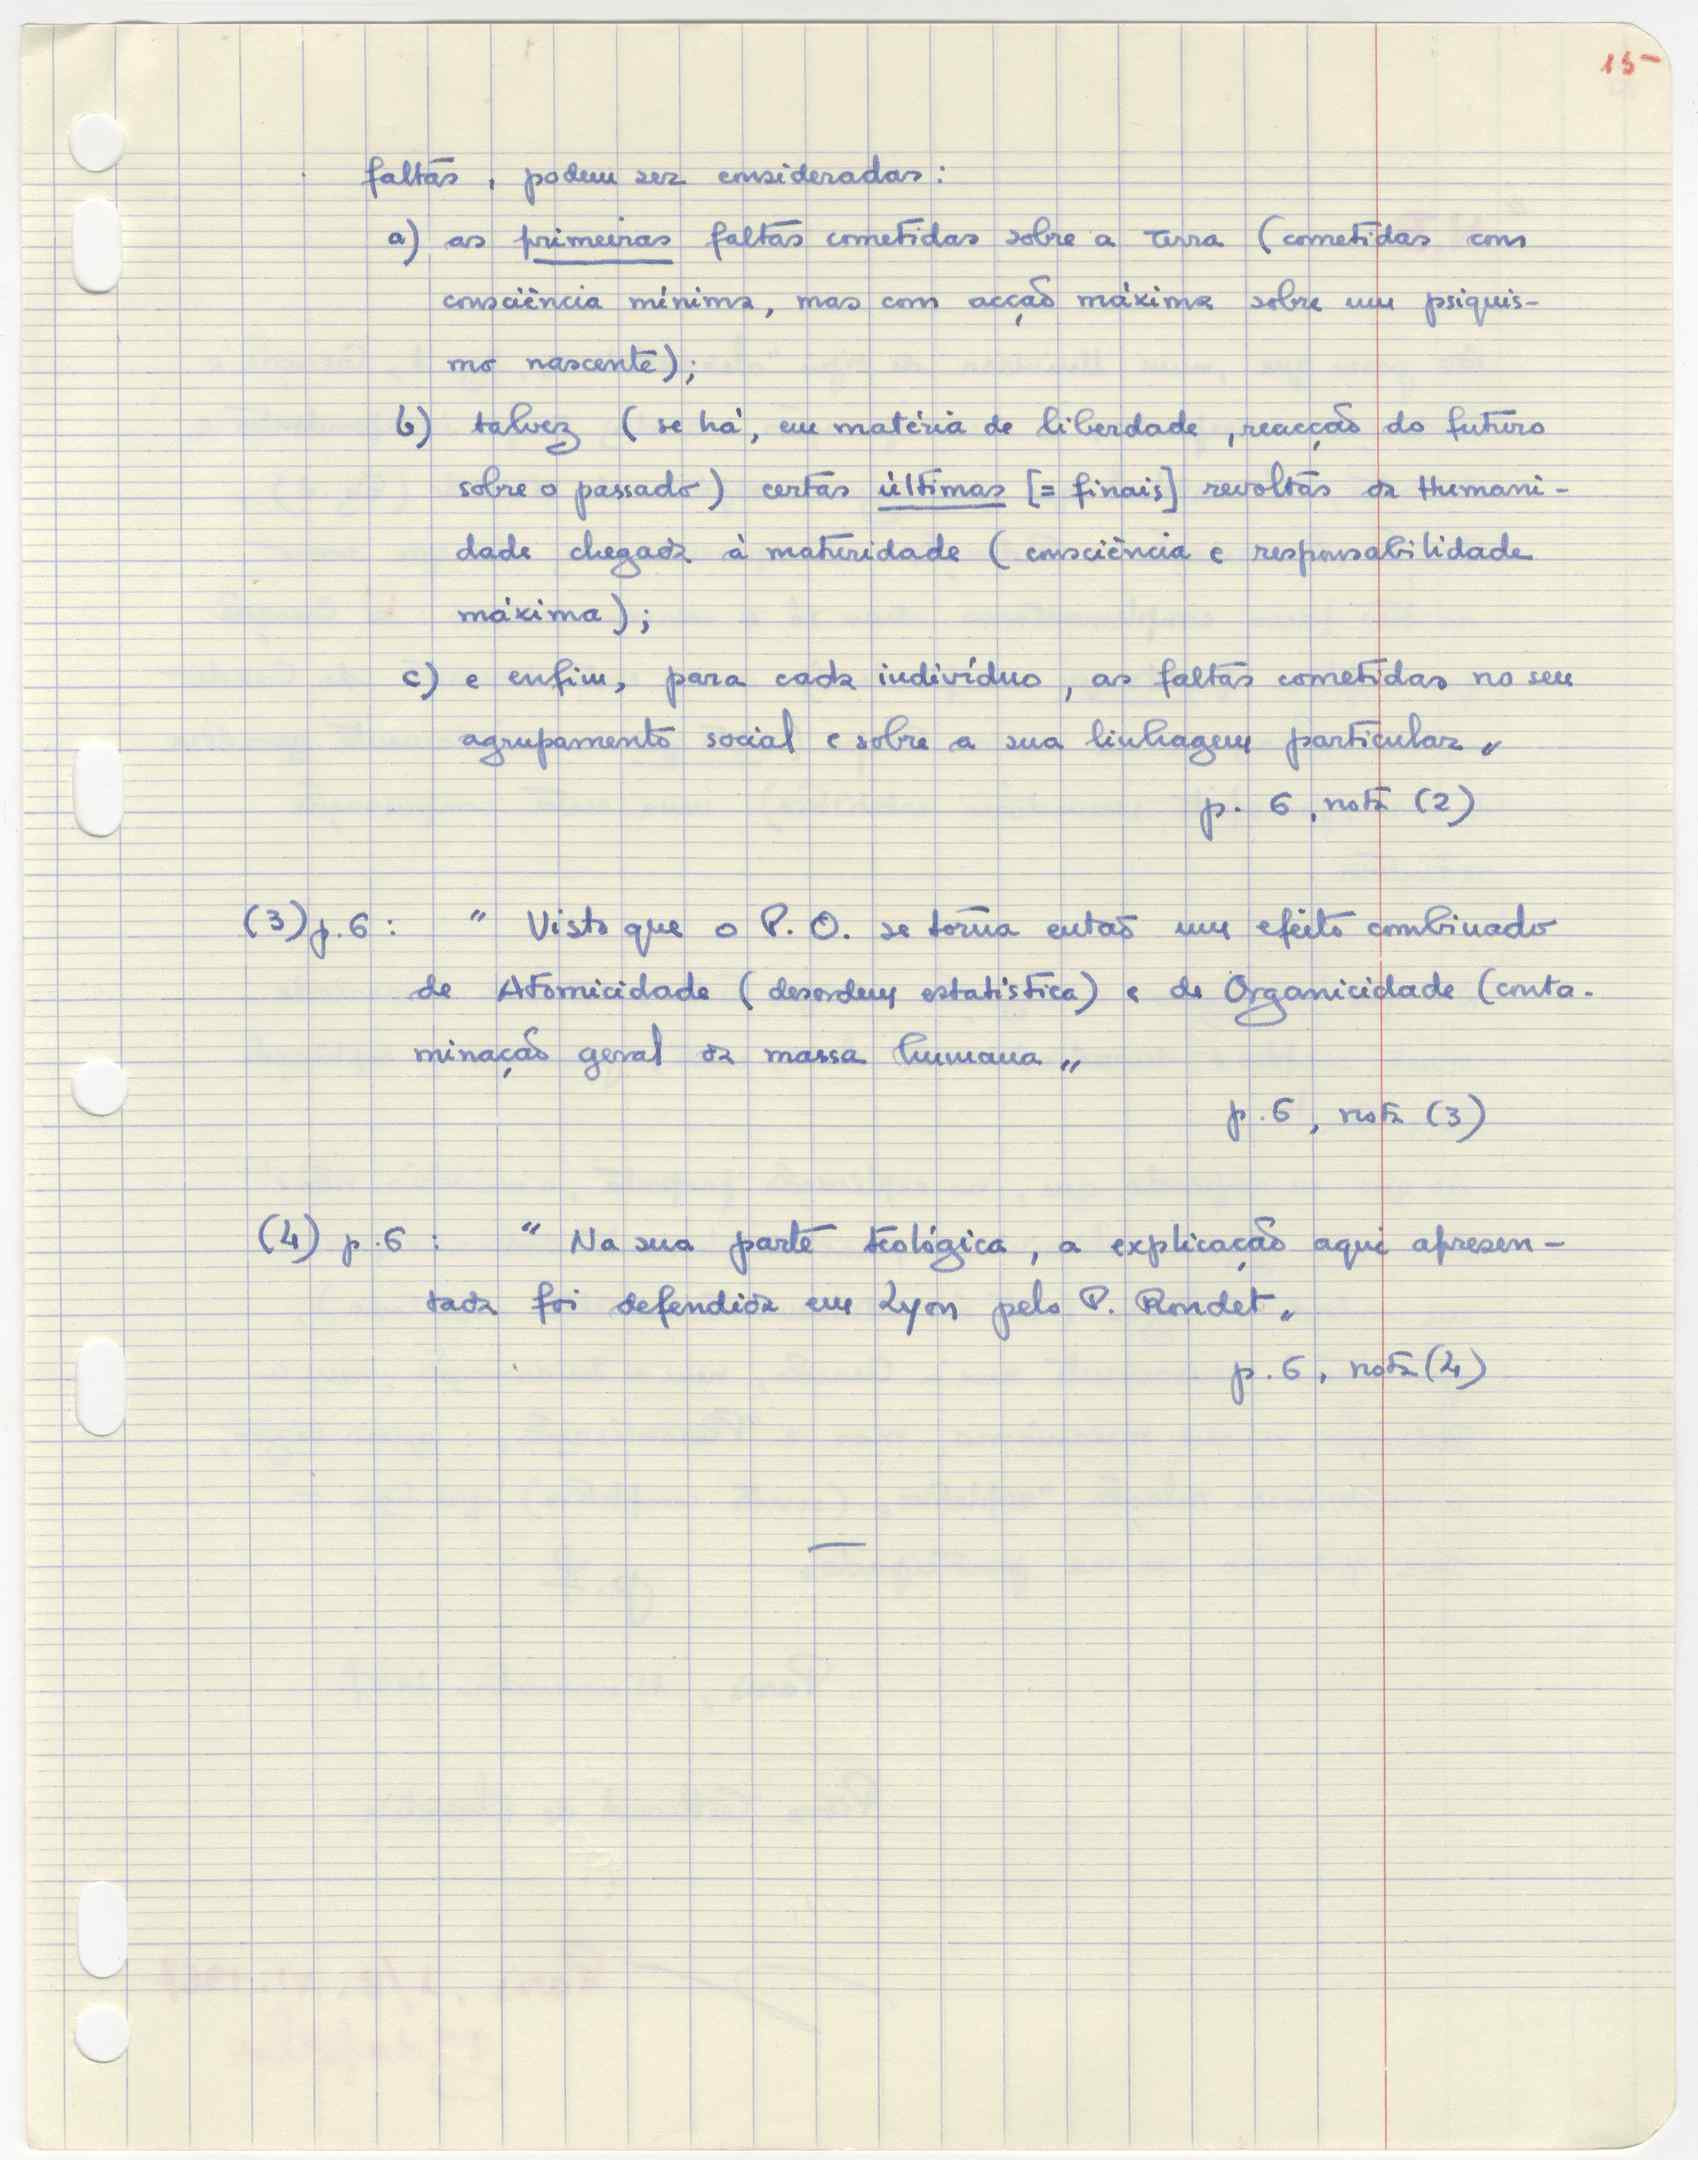 15-
faltas, podem ser consideradas:
a) as primeiras faltas cometidas sobre a Terra (cometidas com
consciência mínima, mas com acção máxima sobre um psiquis-
mo nascente);
b) talvez (se há, em matéria de liberdade, reacção do futuro
sobre o passado) certas últimas [= finais] revoltas da Humani-
dade chegada à maturidade (consciência e responsabilidade
máxima);
c) e enfim, para cada indivíduo, as faltas cometidas no seu
agrupamento social e sobre a sua linhagem particular"
p. 6, nota (2)
(3) p. 6: " Visto que o P. O. se torna então um efeito combinado
de Atomicidade (desordem estatística) e de Organicidade (conta-
minação geral da massa humana"
p. 6, nota (3)
(4) p. 6: " Na sua parte teológica, a explicação aqui apresen-
tada foi defendida em Lyon pelo P. Rondet"
p. 6, nota (4)